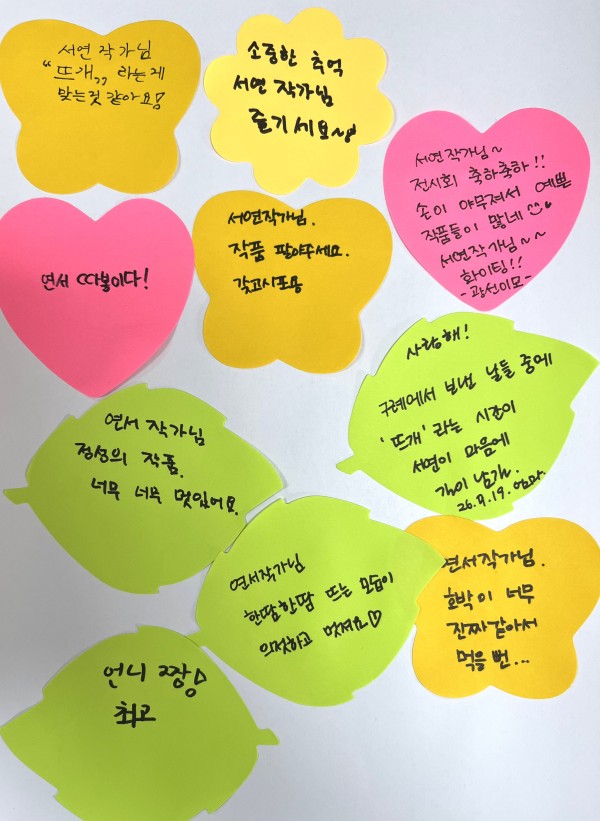 서연 작가님
“뜨개,, 라는게
맞는것 같아요!
소중한 추억
서연 작가님
즐기세요~!
서연작가님~
전시회 축하축하!!
손이 야무져서 예쁜
작품들이 많네
서연작가님~~
화이팅!!
-광선이모-
연서 따봉이다!
서연작가님.
작품 팔아주세요.
갖고시포용
사랑해!
구례에서 보낸 날들 중에
'뜨개' 라는 시간이
서연이 마음에
깊이 남길.
26.7.19. 엄마.
연서 작가님
정성의 작품.
너무 너무 멋있어요.
연서작가님
한땀한땀 뜨는 모습이
의젓하고 멋져요♡
연서작가님.
호박이 너무
진짜같아서
먹을 뻔...
언니 짱!
최고